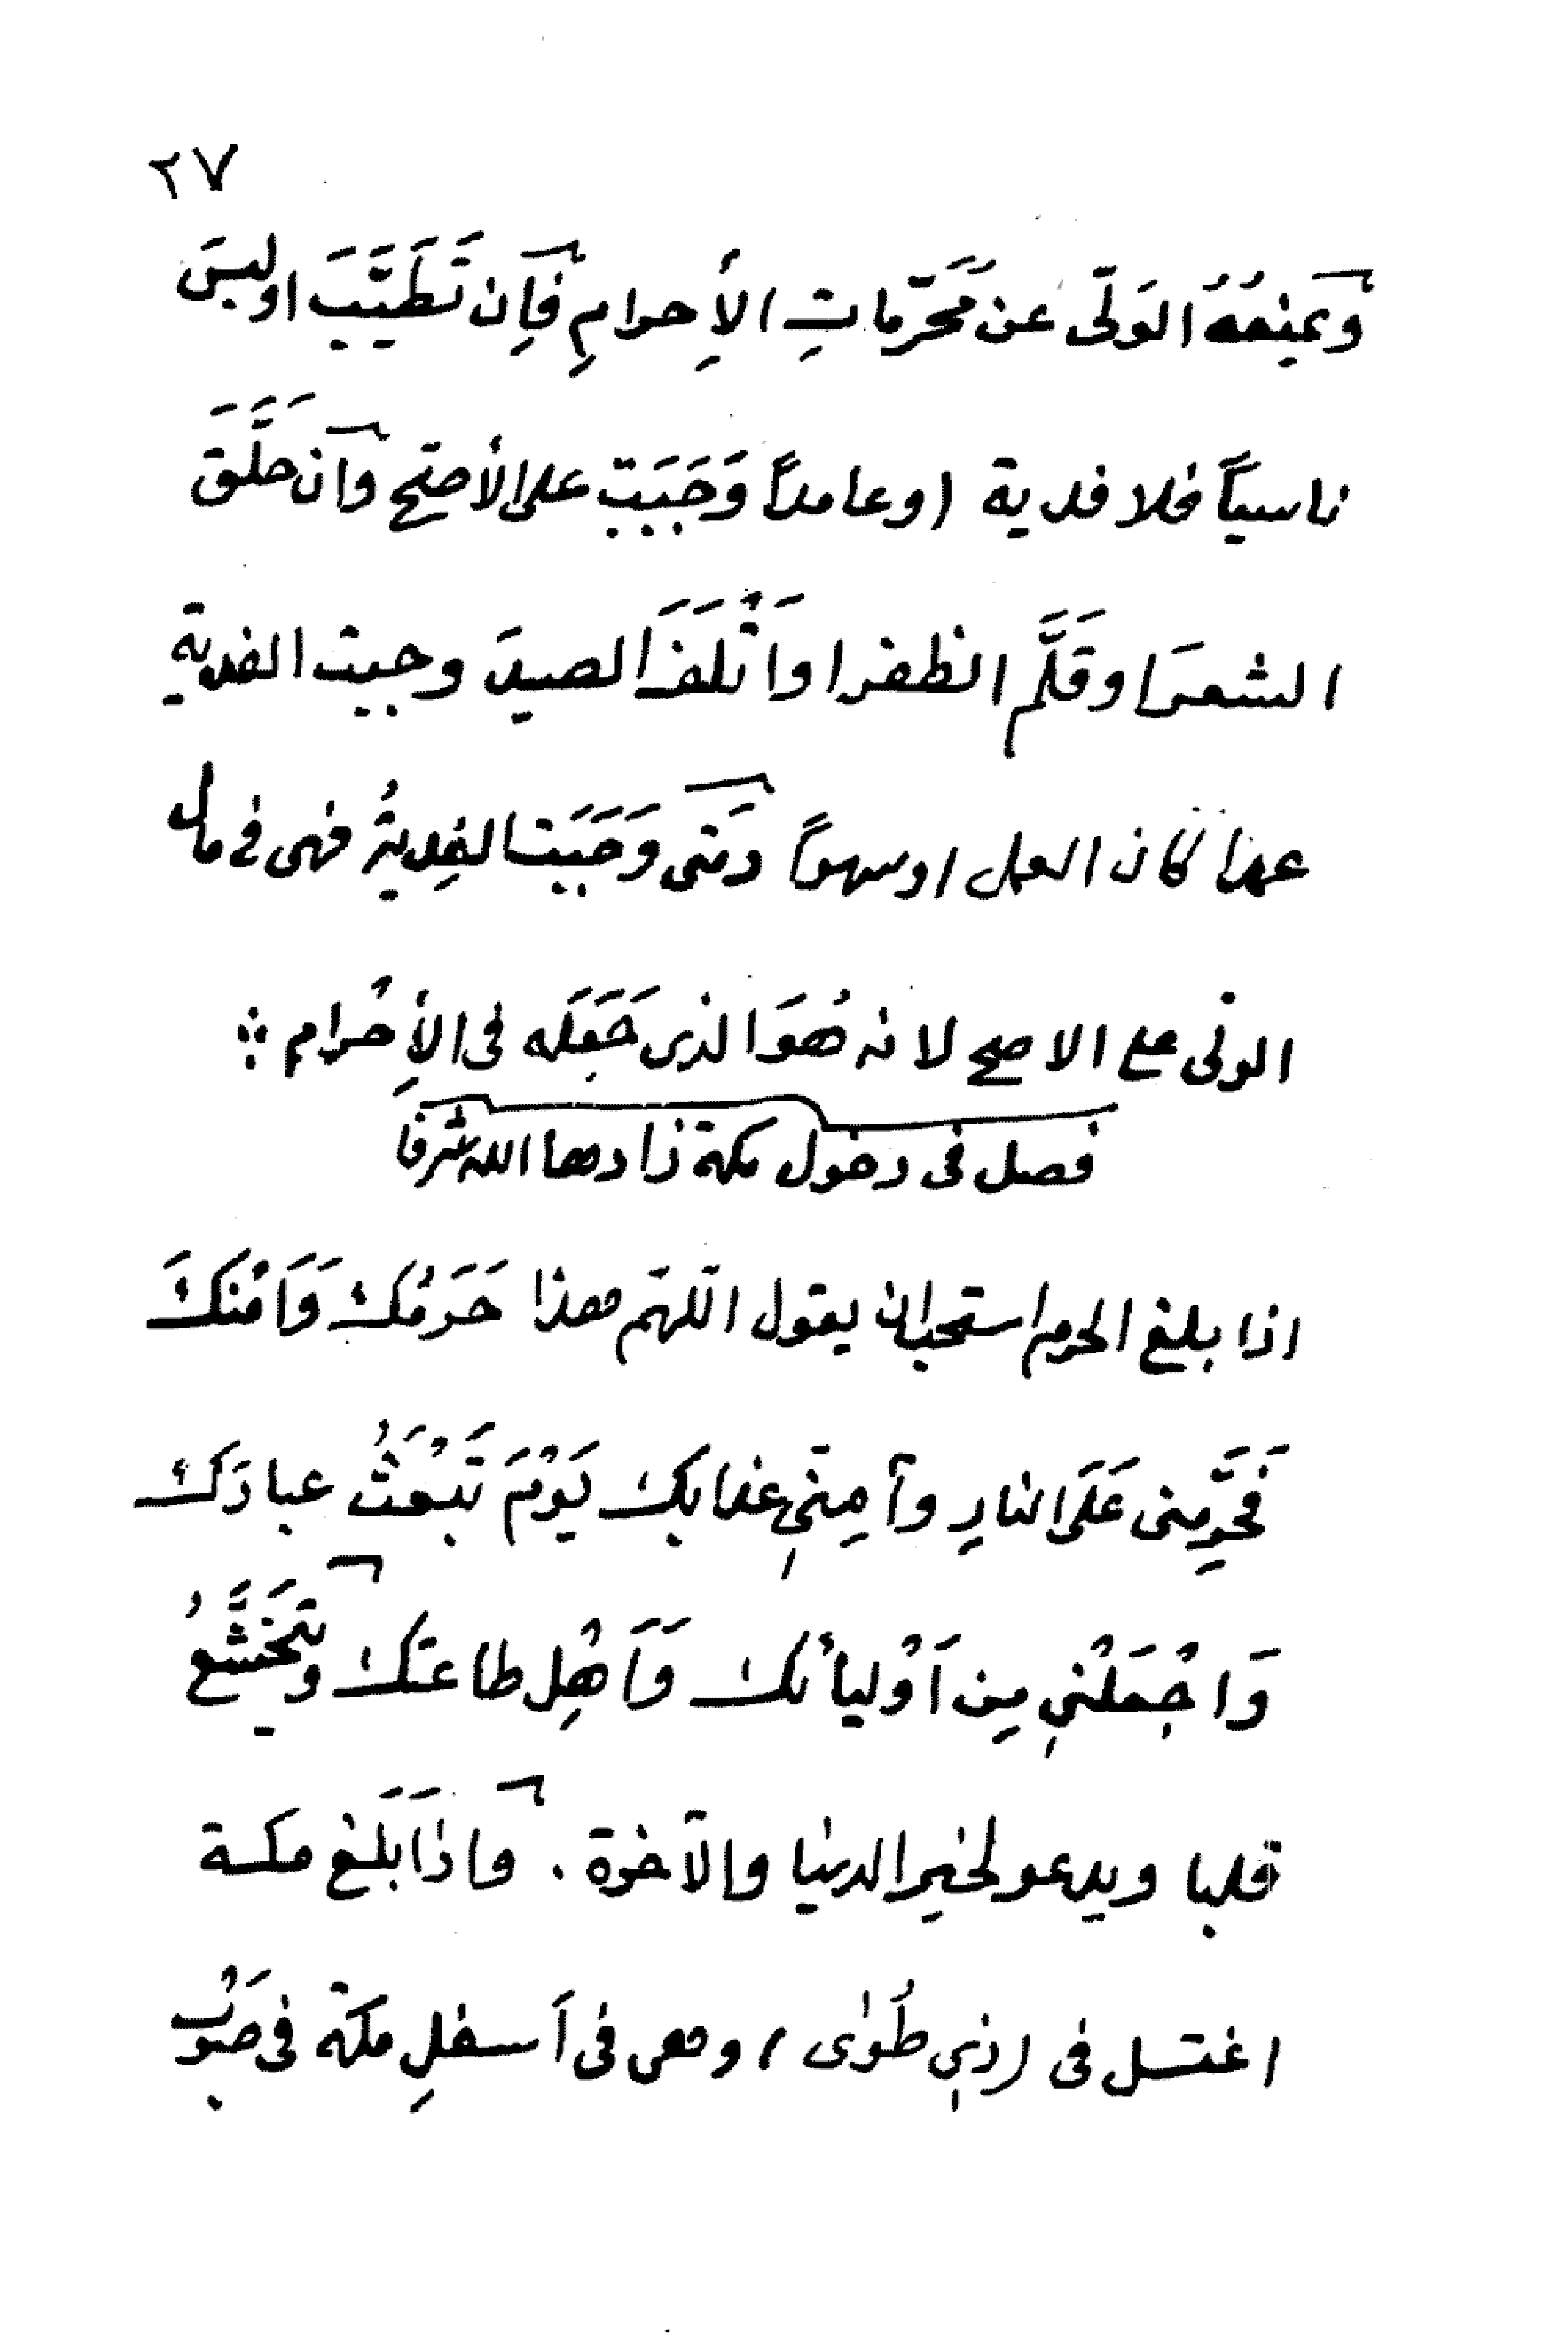 ٢٧
ويمنعُهُ الوَلّى عن مُحَرّماتِ الأِحرامِ فَاِن تَطَيَّبَ اولبسَ
ناسياً فلا فدية اوعامداً وَجَبَت على الأصَحِّ وَان حَلَّقَ
الشعرَ اوقَلَّم الظفر اواَتْلَفَ الصيدَ وجبت الفدية
عمدا كان العمل اوسهواً وَمتى وَجَبَت الفِديةُ فهى فى مال
الولّى على الاصح لانه هُوَ الذى جَعَلَه فى الأِحْرامِ
فصل فى دخول مكة زادها الله شرفا
اذا بلغ الحرم استحب ان يقول اللّهم هذا حَرَمُكَ وَاَمْنكَ
فَحَرِّمنى عَلَى النارِ وآمِنّىِ عذابك يَوْمَ تَبْعَثُ عبادَكَ
وَاجْعَلْنىِ مِن اَوْليائك وَاَهْلِ طاعتك وَيتَخَشَّعُ
قلبا ويدعو لخير الدنيا والآخرة . وَاذا بَلَغ مكة
اغتسل فى (ذىِ طُوٰى) وهى فى أسفلِ مكة فى صَوْب